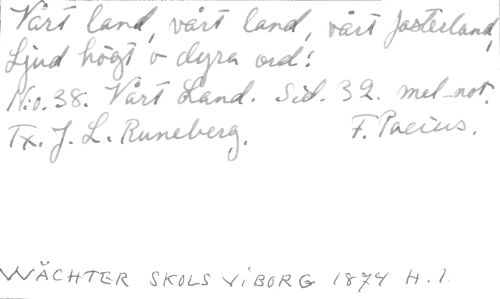 Vårt land, vårt land, vårt fosterland,
Ljud högt o dyra ord!
N:o. 38. Vårt Land. Sid. 32. mel-not.
Tx. J. L. Runeberg. F. Pacius.
WÄCHTER SKOLS VIBORG 1874 H. 1.